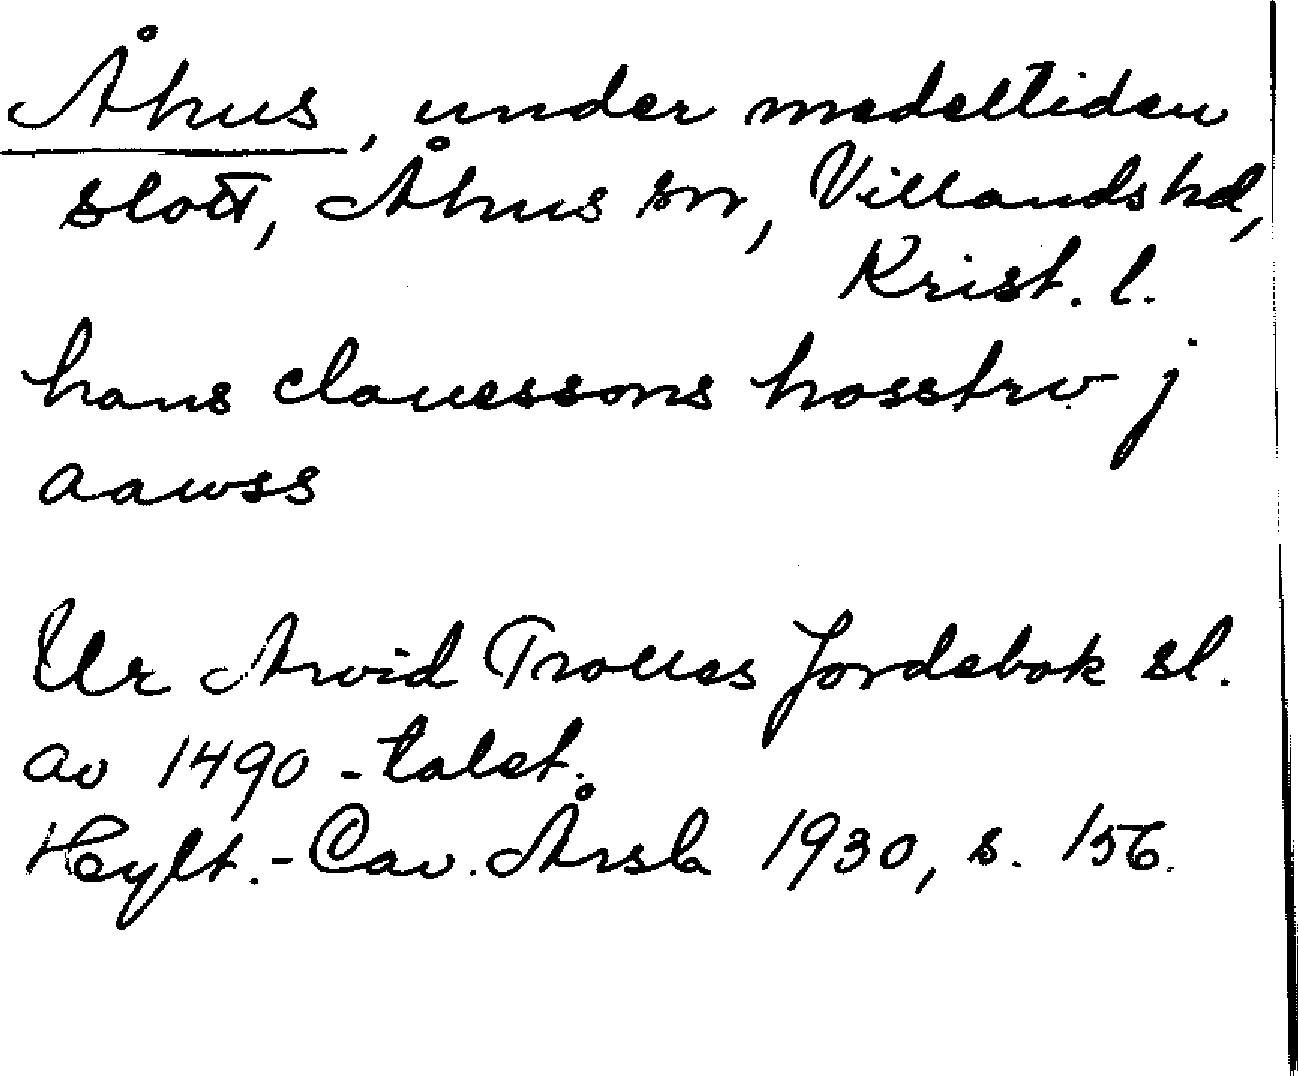 Åhus, under medeltiden
slott, Åhus sn, Villands hd,
Krist. l.
hans clauessons hosstrv j
aawss
Ur Arvid Trolles Jordebok sl.
av 1490-talet.
Hylt.-Cav. Årsb 1930, s. 156.